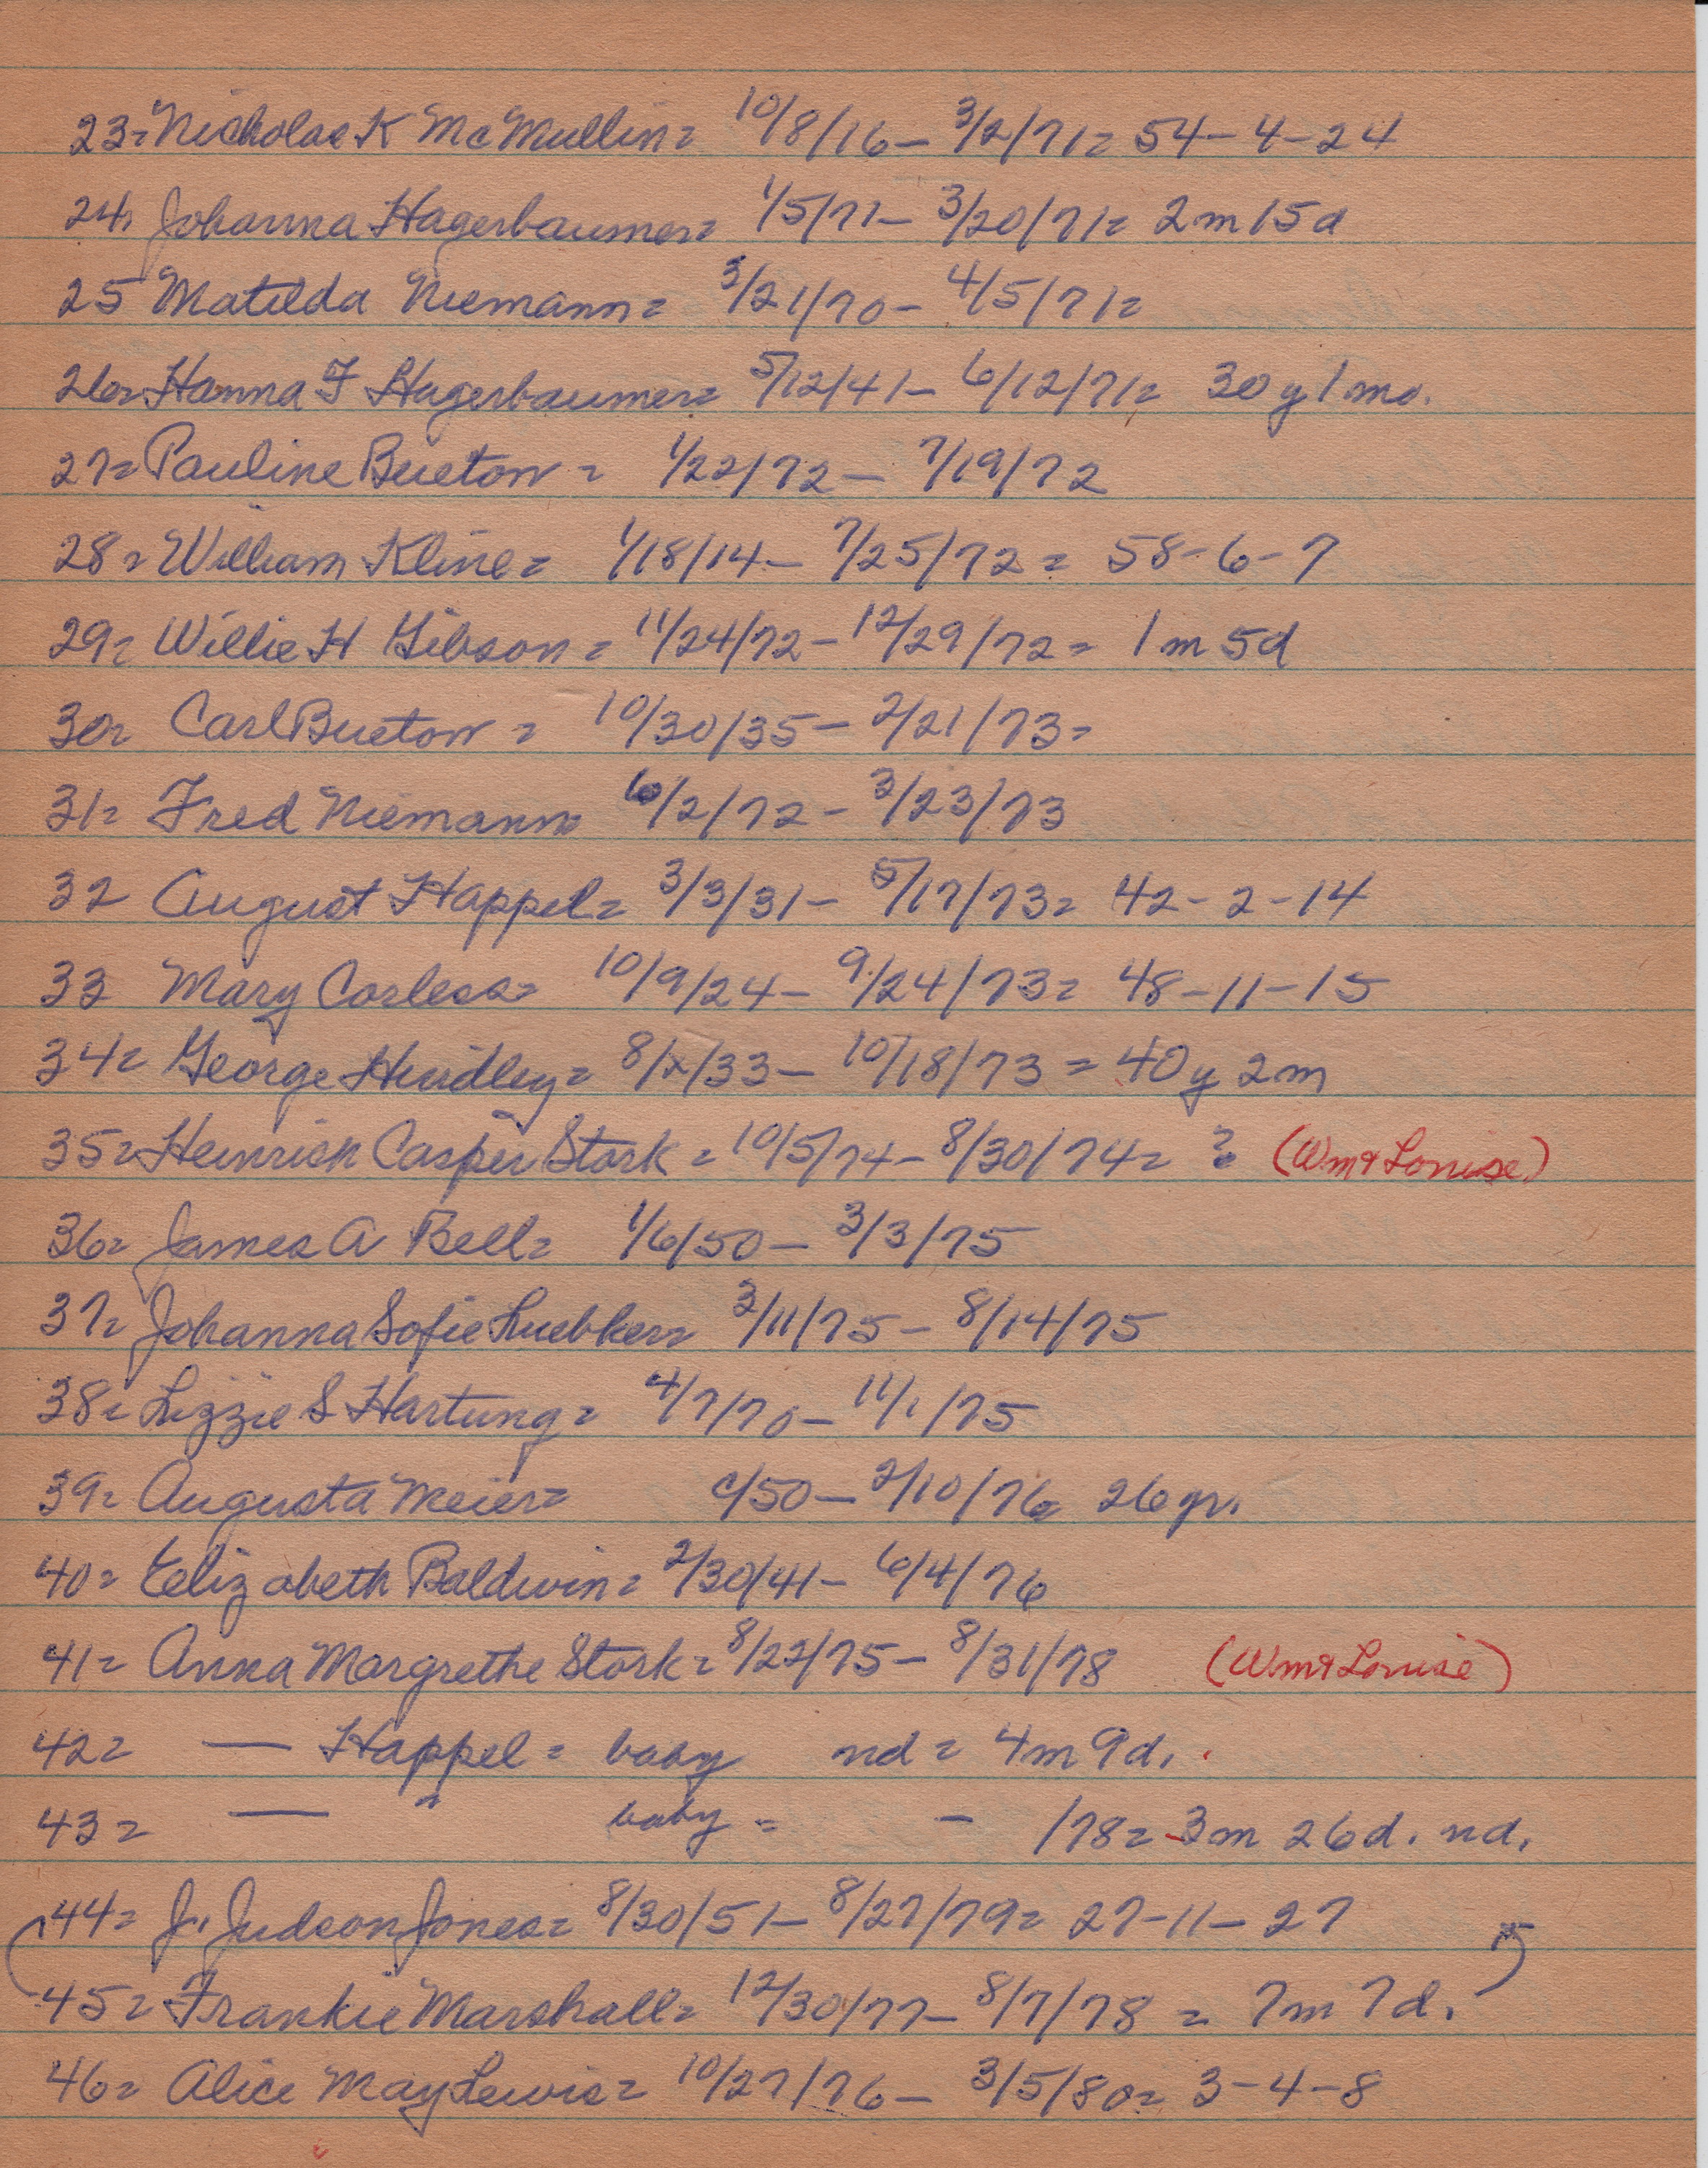 23= Nicholas K McMullin= 10/8/16- 3/2/71= 54-4-24
24= Johanna Hagerbaumer= 1/5/71- 3/20/71= 2m 15d
25 Matilda Niemann= 3/21/70- 4/5/71=
26= Hanna F Hagerbaumer= 5/12/41- 6/12/71= 30y 1mo.
27= Pauline Bueton= 1/22/72- 7/19/72
28= William Kline= 1/18/14- 7/25/72= 58-6-7
29= Willie H Gibson= 11/24/72- 12/29/72= 1m 5d
30= Carl Bueton= 10/30/35- 2/21/73=
31= Fred Niemann= 6/2/72- 3/23/73
32 August Happel= 3/3/31- 5/17/73= 42-2-14
33 Mary Corless= 10/9/24- 9/24/73= 48-11-15
34= George Hindley= 8/x/33- 10/18/73= 40y 2m
35= Heinrich Casper Stork= 10/5/74- 8/30/74= ? (Wm & Louise)
36= James A Bell= 1/6/50- 3/3/75
37= Johanna Sofie Luebker= 3/11/75- 8/14/75
38= Lizzie S Hartung= 4/7/70- 11/1/75
39= Augusta Meier= c/50- 2/10/76= 26yr.
40= Elizabeth Baldwin= 2/30/41- 6/4/76
41= Anna Margrethe Stork= 8/22/75- 8/31/78 (Wm & Louise)
42= — Happel= baby nd= 4m 9d.
43= — " baby= - /78= 3m 26d. nd.
44= J. Judson Jones= 8/30/51- 8/27/79= 27-11-27
45= Frankie Marshall= 12/30/77- 8/7/78= 7m 7d.
46= Alice May Lewis= 10/27/76- 3/5/80= 3-4-8